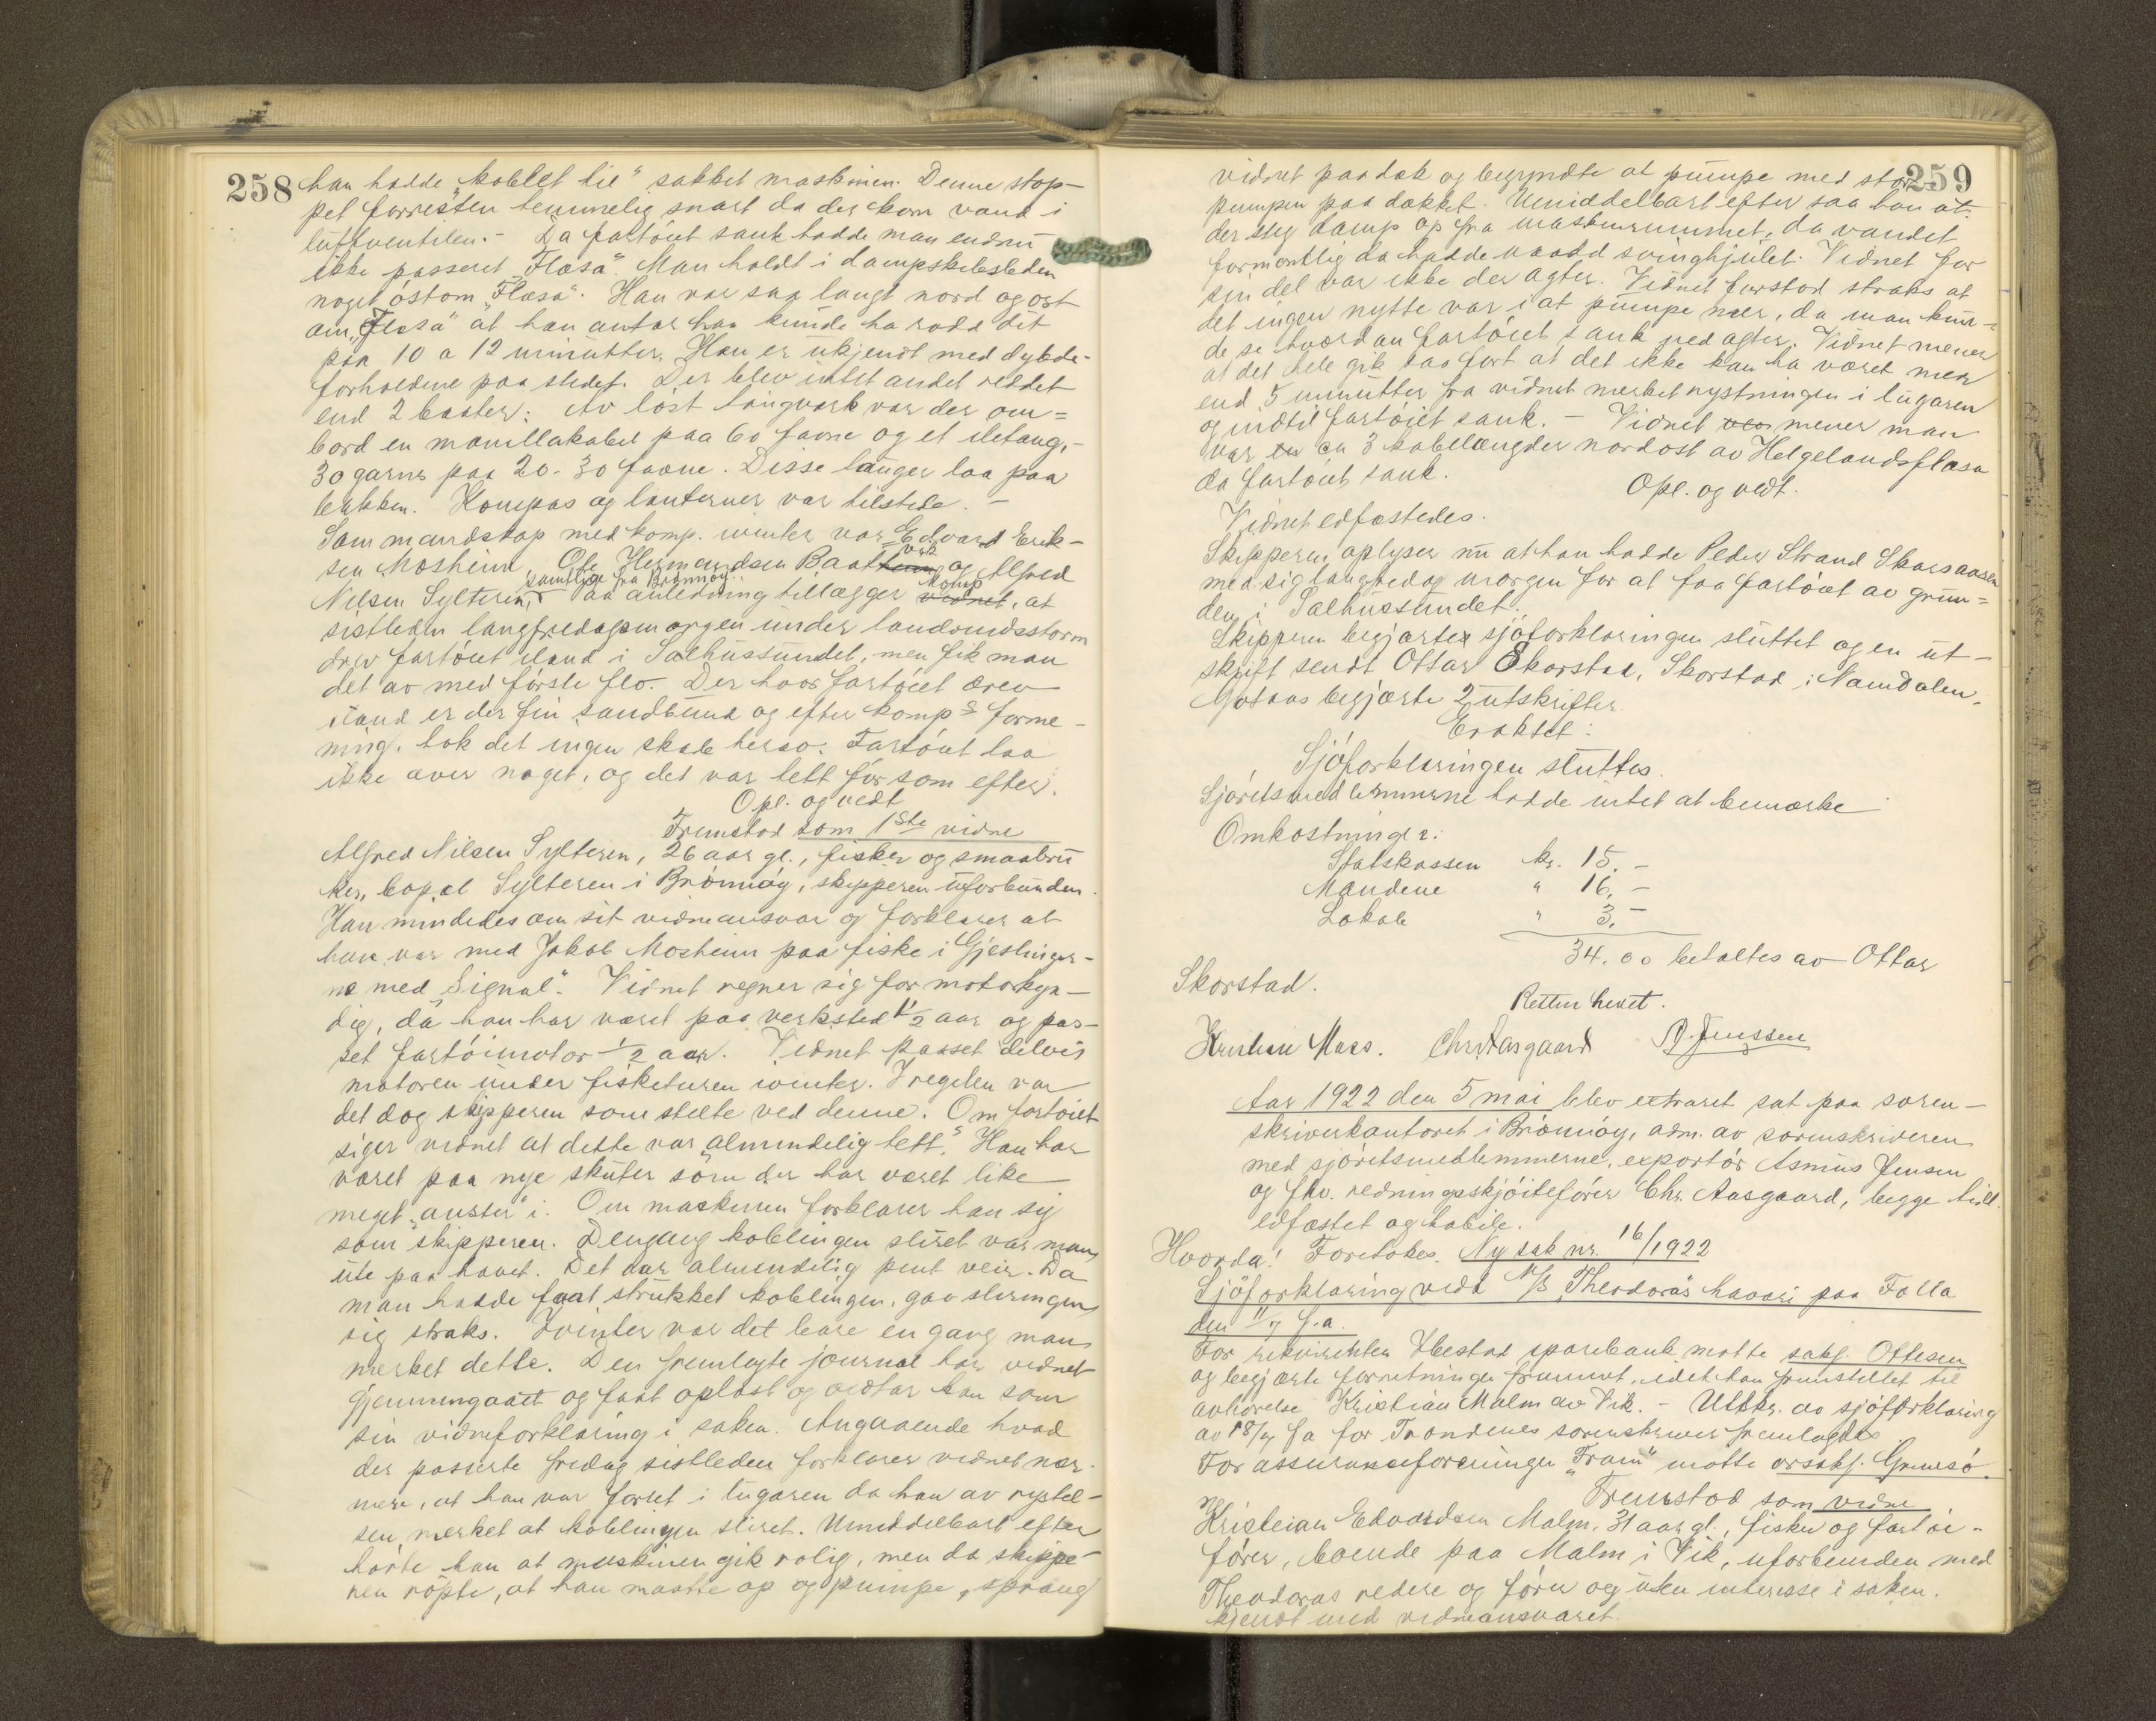 258
han hadde „koblet til" sakket maskinen. Denne stop-
pet forresten temmelig snart da der kom vand i
luftventilen. - Da fartöiet sank hadde man endnu
ikke passeret „Flæsa". Man holdt i dampskibsleden
noget östom „Flæsa". Han var saa langt nord og ost
om „Flæsa" at han antar han kunde ha rodd dit
paa 10 a 12 minutter. Han er ukjendt med dybde-
forholdene paa stedet. Der blev intet andet reddet
end 2 baater. Av löst taugverk var der om=
bord en manillakabel paa 60 favne og et iletaug,
30 garns paa 20-30 favne. Disse tauger laa paa
bakken. Kompas og lanterner var tilstede. -
Som mandskap med komp. ivinter var Edvard Erik-
sen Mosheim, Ole Hermandsen Baatvik og Alfred
Nilsen Sylteren, samtlige fra Brönnöy. Paa anledning tillægger komp. at
sistleden langfredagsmorgen under landvindsstorm
drev fartöiet iland i Salhussundet, men fik man
det av med förste flo. Der hvor fartöiet drev
iland er der fin sandbund og efter komps forme-
ning, tok det ingen skade herav. Fartöiet laa
ikke over noget, og det var tett för som efter.
Opl. og vedt
Fremstod som 1ste vidne
Alfred Nilsen Sylteren, 26 aar gl., fisker og smaabru
ker, bopæl Sylteren i Brönnöy, skipperen uforbunden.
Han mindedes om sit vidneansvar og forklarer at
han var med Jakob Mosheim paa fiske i Gjeslinger-
ne med „Signal". Vidnet regner sig for motorkyn-
dig, da han har været paa verksted 1½ aar og pas-
set fartöimotor ½ aar. Vidnet passet delvis
motoren under fisketuren ivinter. I regelen var
det dog skipperen som stelte ved denne. Om fartöiet
siger vidnet at dette var „almindelig tett". Han har
været paa nye skuter som der har været like
meget „auster" i. Om maskinen forklarer han sig
som skipperen. Dengang koblingen sluret var man
ute paa havet. Det var almindelig pent veir. Da
man hadde faat strukket koblingen, gav sluringen
sig straks. Ivinter var det bare en gang man
merket dette. Den fremlagte journal har vidnet
gjennemgaaet og faat oplæst og vedtar han som
sin vidneforklaring i saken. Angaaende hvad
der passerte fredag sistleden forklarer vidnet nær-
mere, at han var forret i lugaren da han av rystel-
sen merket at koblingen sluret. Umiddelbart efter
hörte han at maskinen gik rolig, men da skippe-
ren röpte, at han maatte op og pumpe, sprang
259
vidnet paa dæk og begyndte at pumpe med stor-
pumpen paa dækket. Umiddelbart efter saa han at
der steg damp op fra maskinrummet, da vandet
formentlig da hadde naadd svinghjulet. Vidnet for
sin del var ikke der agter. Vidnet forstod straks at
det ingen nytte var i at pumpe mer, da man kun-
de se hvordan fartöiet sank ned agter. Vidnet mener
at det hele gik saa fort at det ikke kan ha været mer
end 5 minutter fra vidnet merket rystningen i lugaren
og indtil fartöiet sank. - Vidnet mener man
var ca 3 kabellængder nordost av Helgelandsflæsa
da fartöiet sank.
Opl. og vedt.
Vidnet edfæstedes.
Skipperen oplyser nu at han hadde Peder Strand Skarsaasen
med sig langfredag morgen for at faa fartöiet av grun=
den i Salhussundet.
Skipperen begjærte sjöforklaringen sluttet og en ut-
skrift sendt Ottar Skorstad, Skorstad i Namdalen.
Motaas begjærte 2 utskrifter.
Eraktet:
Sjöforklaringen sluttes.
Sjöretsmedlemmerne hadde intet at bemærke
Omkostninger:
Statskassen kr. 15.-
Mændene " 16.-
Lokale " 3.-
34.00 betaltes av Ottar
Skorstad.
Retten hevet.
Kristian Maas. Chr Aasgaard A. Jenssen
Aar 1922 den 5 mai blev extraret sat paa soren-
skriverkontoret i Brönnöy, adm. av sorenskriveren
med sjöretsmedlemmerne, exportör Asmus Jensen
og fhv. redningsskjöitefører Chr. Aasgaard, begge tidl.
edfæstet og habile.
Hvorda! Foretokes. Ny sak nr. 16/1922
Sjöforklaring vedk M/S „Theodora's havari paa Folla
den 11/4 f.a.
For rekvirenten Ibestad sparebank mötte sakf. Ottesen
og begjærte forretningen fremmet, idet han fremstillet til
avhörelse Kristian Malm av Vik. - Utskr. av sjöforklaring
av 18/4 f a for Trondenes sorenskriver fremlagdes.
For assuranceforeningen „Fram" mötte orsakf. Grimsö.
Fremstod som vidne
Kristian Edvardsen Malm, 31 aar gl., fisker og fartöi-
förer, boende paa Malm i Vik, uforbunden med
Theodoras redere og förer og uten interesse i saken.
Kjendt med vidneansvaret.